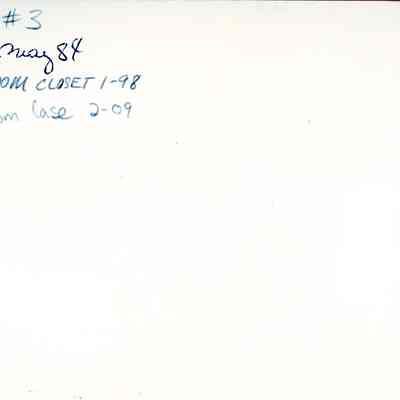 #3
May 84
OM CLOSET 1-98
m Case 2-09